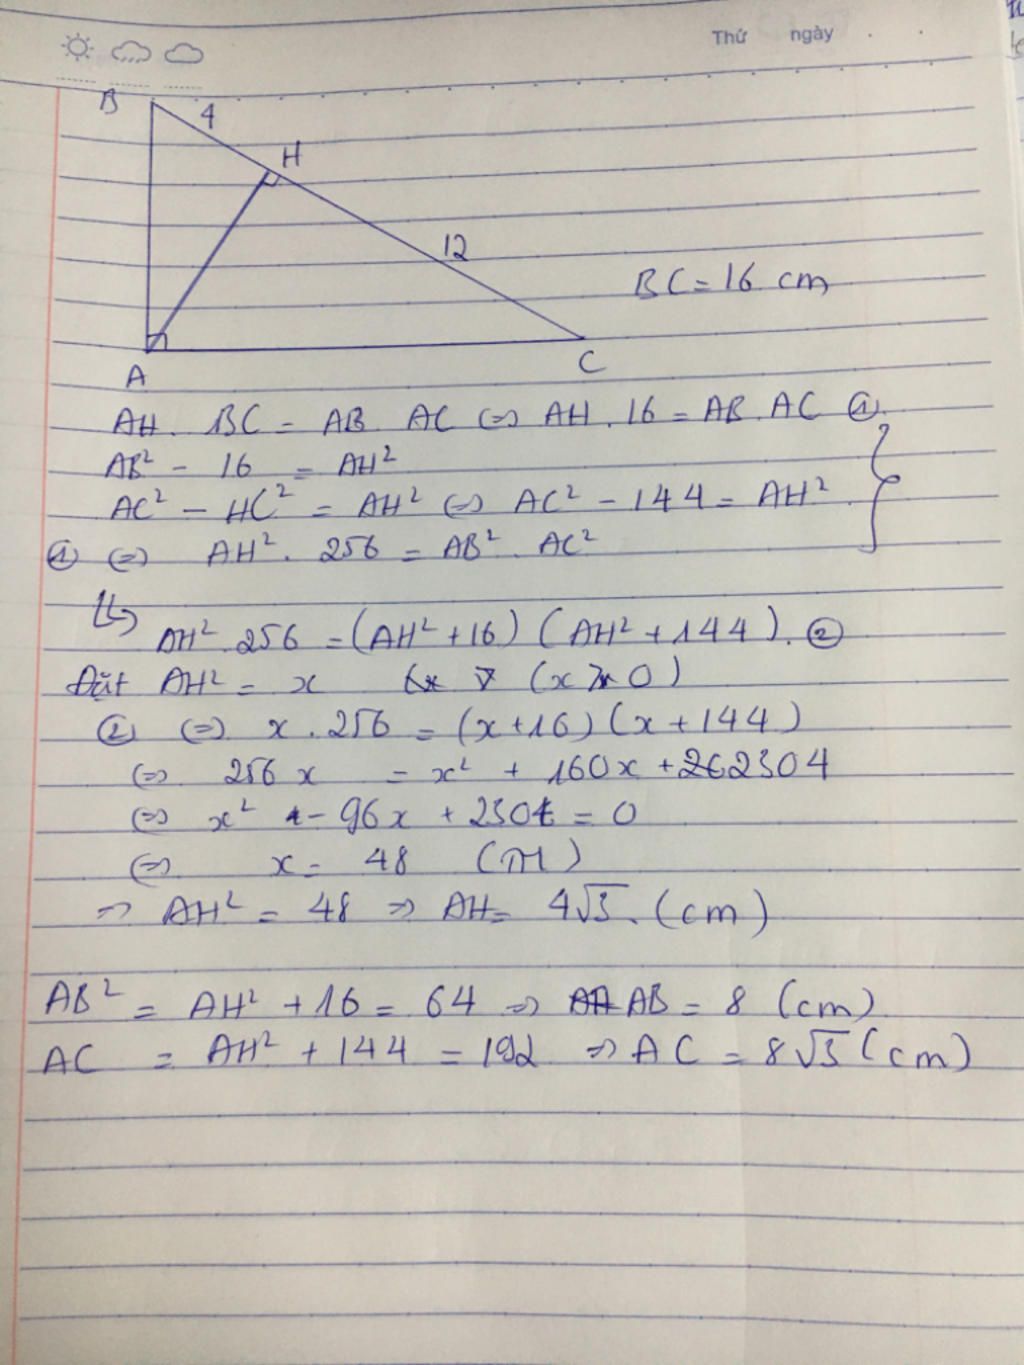 Thứ ngày
B 4
H
12
BC = 16 cm
A C
AH . BC = AB . AC ⇔ AH . 16 = AB . AC ①
AB² - 16 = AH²
AC² - HC² = AH² ⇔ AC² - 144 = AH²
① ⇔ AH² . 256 = AB² . AC²
↳ AH² . 256 = (AH² + 16) (AH² + 144) . ②
Đặt AH² = x (x > 0)
② ⇔ x . 256 = (x + 16) (x + 144)
⇔ 256x = x² + 160x + 2304
⇔ x² - 96x + 2304 = 0
⇔ x = 48 (TM)
⇒ AH² = 48 ⇒ AH = 4√3 . (cm)
AB² = AH² + 16 = 64 ⇒ AB = 8 (cm)
AC = AH² + 144 = 192 ⇒ AC = 8√3 (cm)